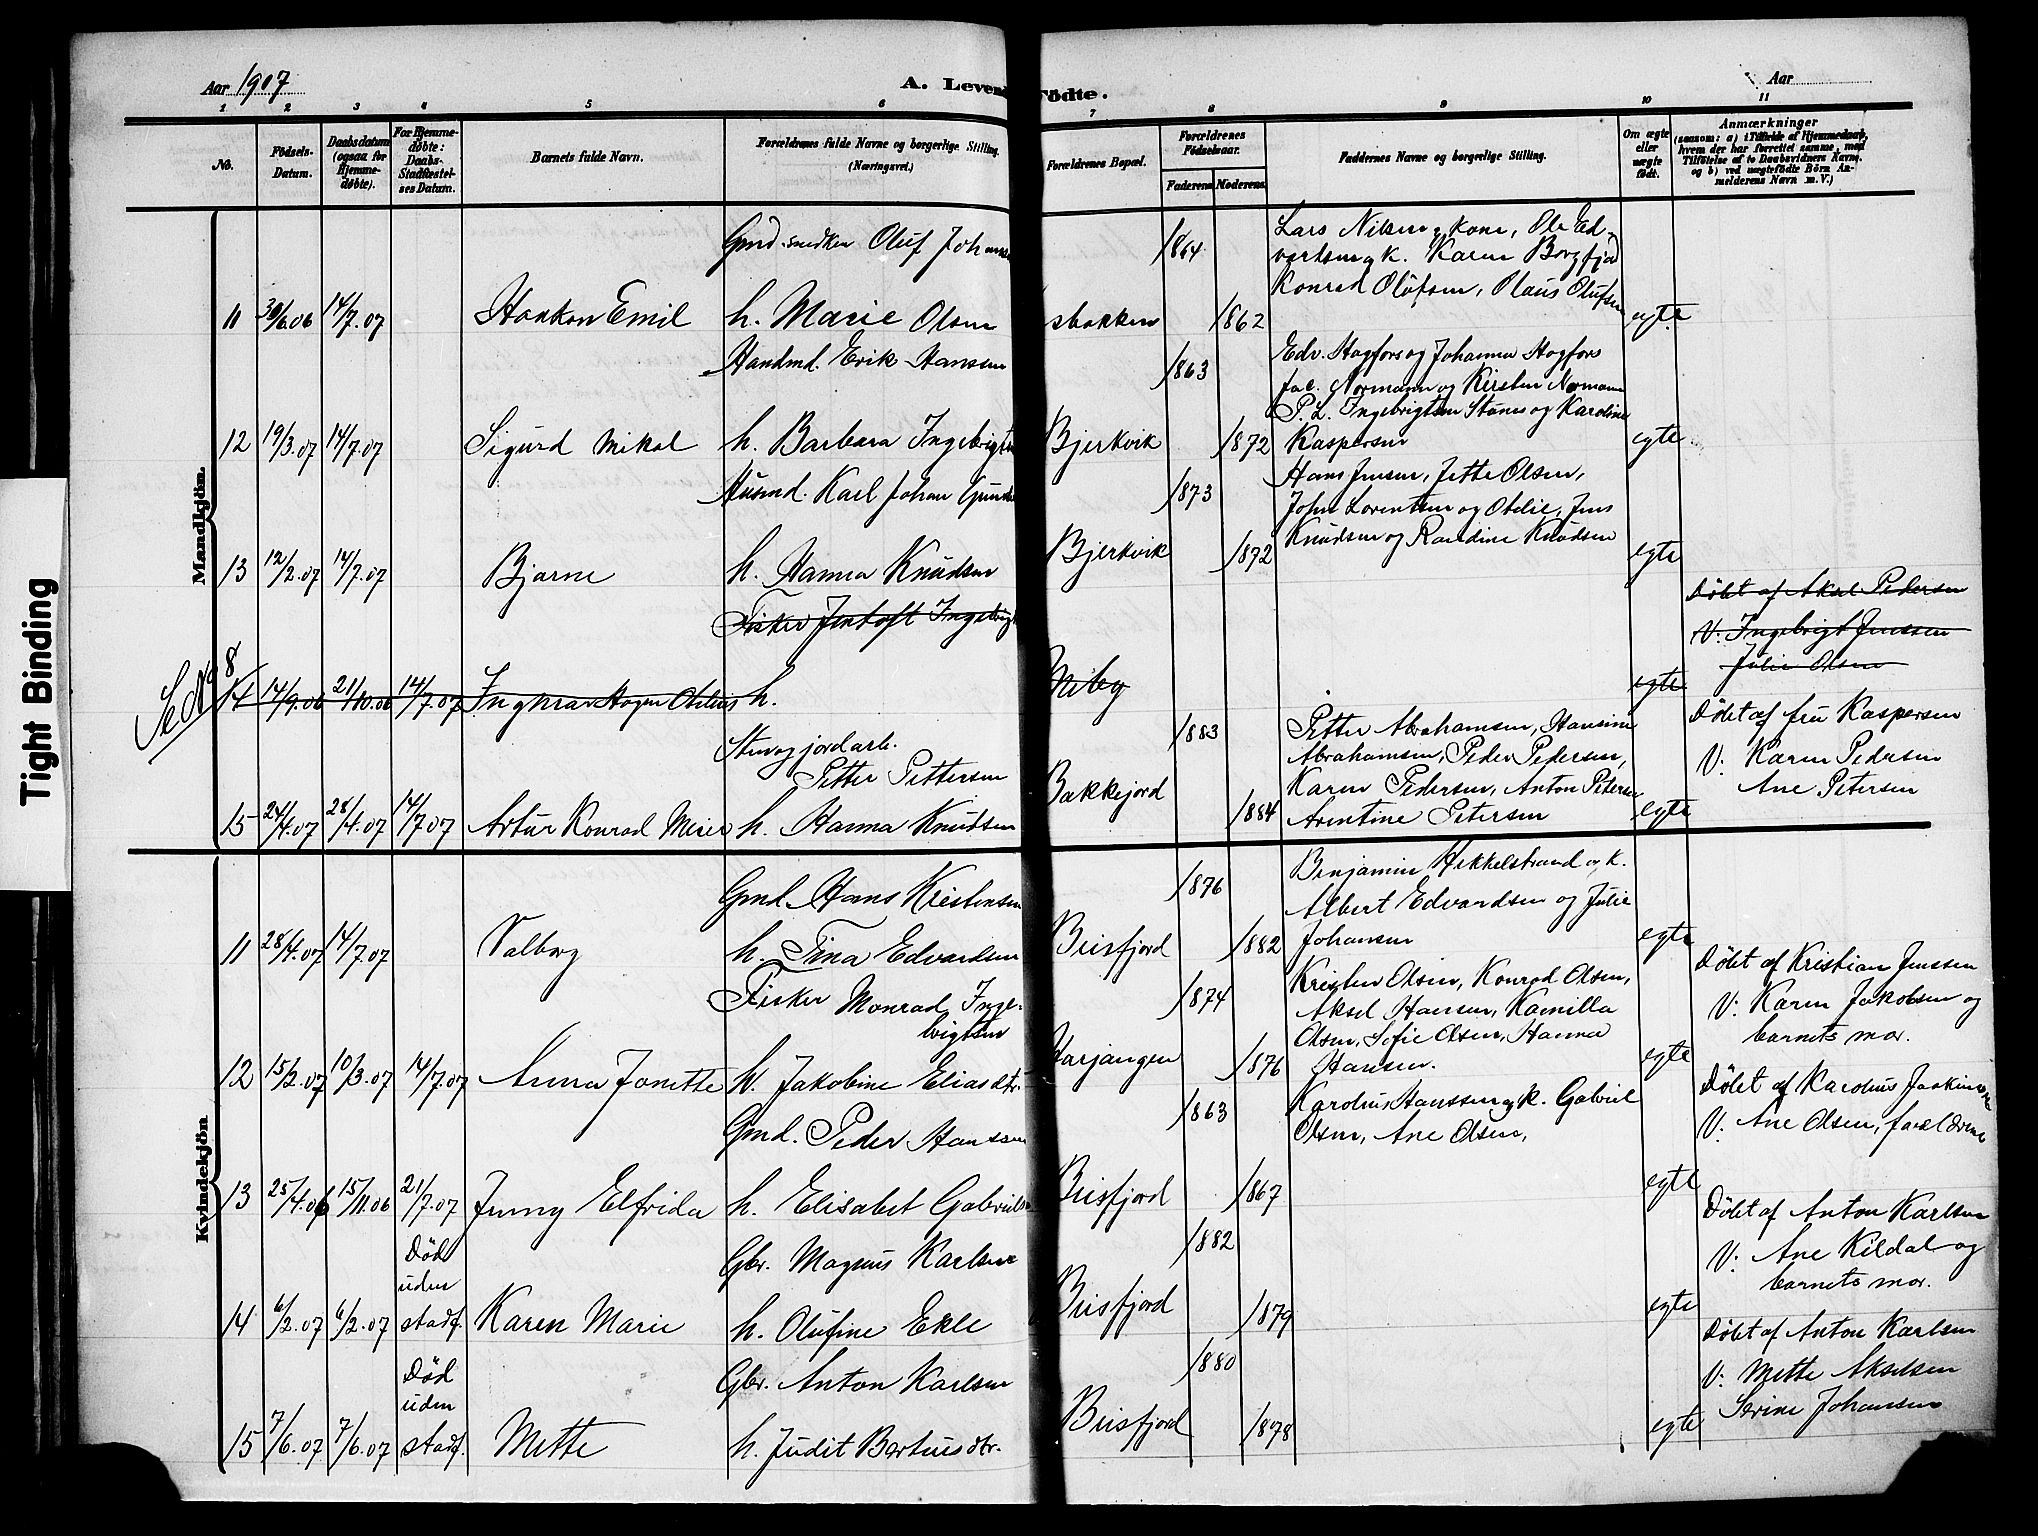 Tight Binding
Aar 1907
A. Levende Födte.
Aar
1 2 3 4 5 6 7 8 9 10 11
No.
Födsels-Datum.
Daabsdatum (ogsaa for Hjemmedøbte).
For Hjemmedøbte: Daabs-Stadfæstelses Datum.
Barnets fulde Navn.
Forældrenes fulde Navne og borgerlige Stilling.
(Næringsvei.)
Forældrenes Bopæl.
Forældrenes Födselsaar.
Faderens. Moderens.
Faddernes Navne og borgerlige Stilling.
Om ægte eller uægte födt.
Anmærkninger
(saasom: a) i Tilfælde af Hjemmedaab, hvem der har forrettet samme, med Tilföielse af to Daabsvidners Navne, og b) ved uægtefödte Börn Anmelderens Navn m. V.)
Mandkjön.
Gmd. snedker Oluf Johans
1864
Lars Nilsen og kone, Ole Ed-
vartsen og k. Karen Borgfjod
Konrad Olufsen, Olaus Olufsen
11 30/6.06 14/7.07 Haakon Emil h. Marie Olsen
sbakken 1862 egte
Handmd. Erik Hanssen
1863
Edv. Hagfors og Johanna Hagfors
Jac. Normann og Kirsten Normann
P. L. Ingebrigtsen Stones og Karoline
12 19/3.07 14/7.07 Sigurd Mikal h. Barbara Ingebrigts
Bjerkvik 1872 Kaspersen egte
Husmd. Karl Johan Gund
1873
Hans Jensen, Jette Olsen,
John Lorentsen og Otelie, Jens
Knudsen og Randine Knudsen
13 12/2.07 14/7.07 Bjarne h. Hanna Knudsen
Bjerkvik 1872 egte
Fisker Jentoft Ingebrigt
Döbt af Aksel Pedersen
V: Ingebrigt Jenssen
Julie Olsen
Se No 8
14 14/9.06 21/10.06 14/7.07 Ingmar Hagen Otelius h.
Niby egte
Sten og jordarb.
Petter Pettersen
1883
Petter Abrahamsen, Hansine
Abrahamsen, Peder Pedersen,
Karen Pedersen, Anton Petersen
Arentine Petersen
Döbt af fru Kaspersen
V: Karen Pedersen
Ane Petersen
15 24/4.07 28/4.07 14/7.07 Artur Konrad Meier h. Hanna Knudsen
Bakkejord 1884 egte
Kvindekjön
Gmd. Hans Kristensen
1876
Benjamin Hekkelstrand og k.
Albert Edvardsen og Julie
11 28/4.07 14/7.07 Valborg h. Tina Edvardsen
Beisfjord 1882 Johansen egte
Fisker Monrad Inge-
brigtsen
1874
Kristen Olsen, Konrad Olsen,
Aksel Hansen, Kamilla
Olsen, Sofie Olsen, Hanna
Hansen.
Döbt af Kristian Jenssen
V: Karen Jakobsen og
barnets mor.
12 15/2.07 10/3.07 14/7.07 Anna Jonette h. Jakobine Eliasdtr.
Harjangen 1876 egte
Gmd. Peder Hanssen
1863
Karolius Hanssen og k. Gabriel
Olsen, Ane Olsen,
Döbt af Karolius Joakimsen
V: Ane Olsen, forældrene
13 25/4.06 15/11.06 21/7.07 Jenny Elfrida h. Elisabet Gabriels
Beisfjord 1867 egte
Död
uden
stadf.
Gbr. Magnus Karlsen
1882
Döbt af Anton Karlsen
V: Ane Kildal og
barnets mor.
14 6/2.07 6/2.07 Karen Marie h. Olufine Ekle
Beisfjord 1879 egte
Död
uden
stadf.
Gbr. Anton Karlsen
1880
Döbt af Anton Karlsen
V: Mette Akselsen
Serine Johansen
15 7/6.07 7/6.07 Mette h. Judit Bertheusdtr.
Beisfjord 1878 egte